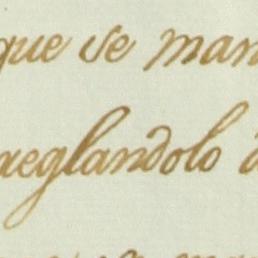 que se man
reglandolo a